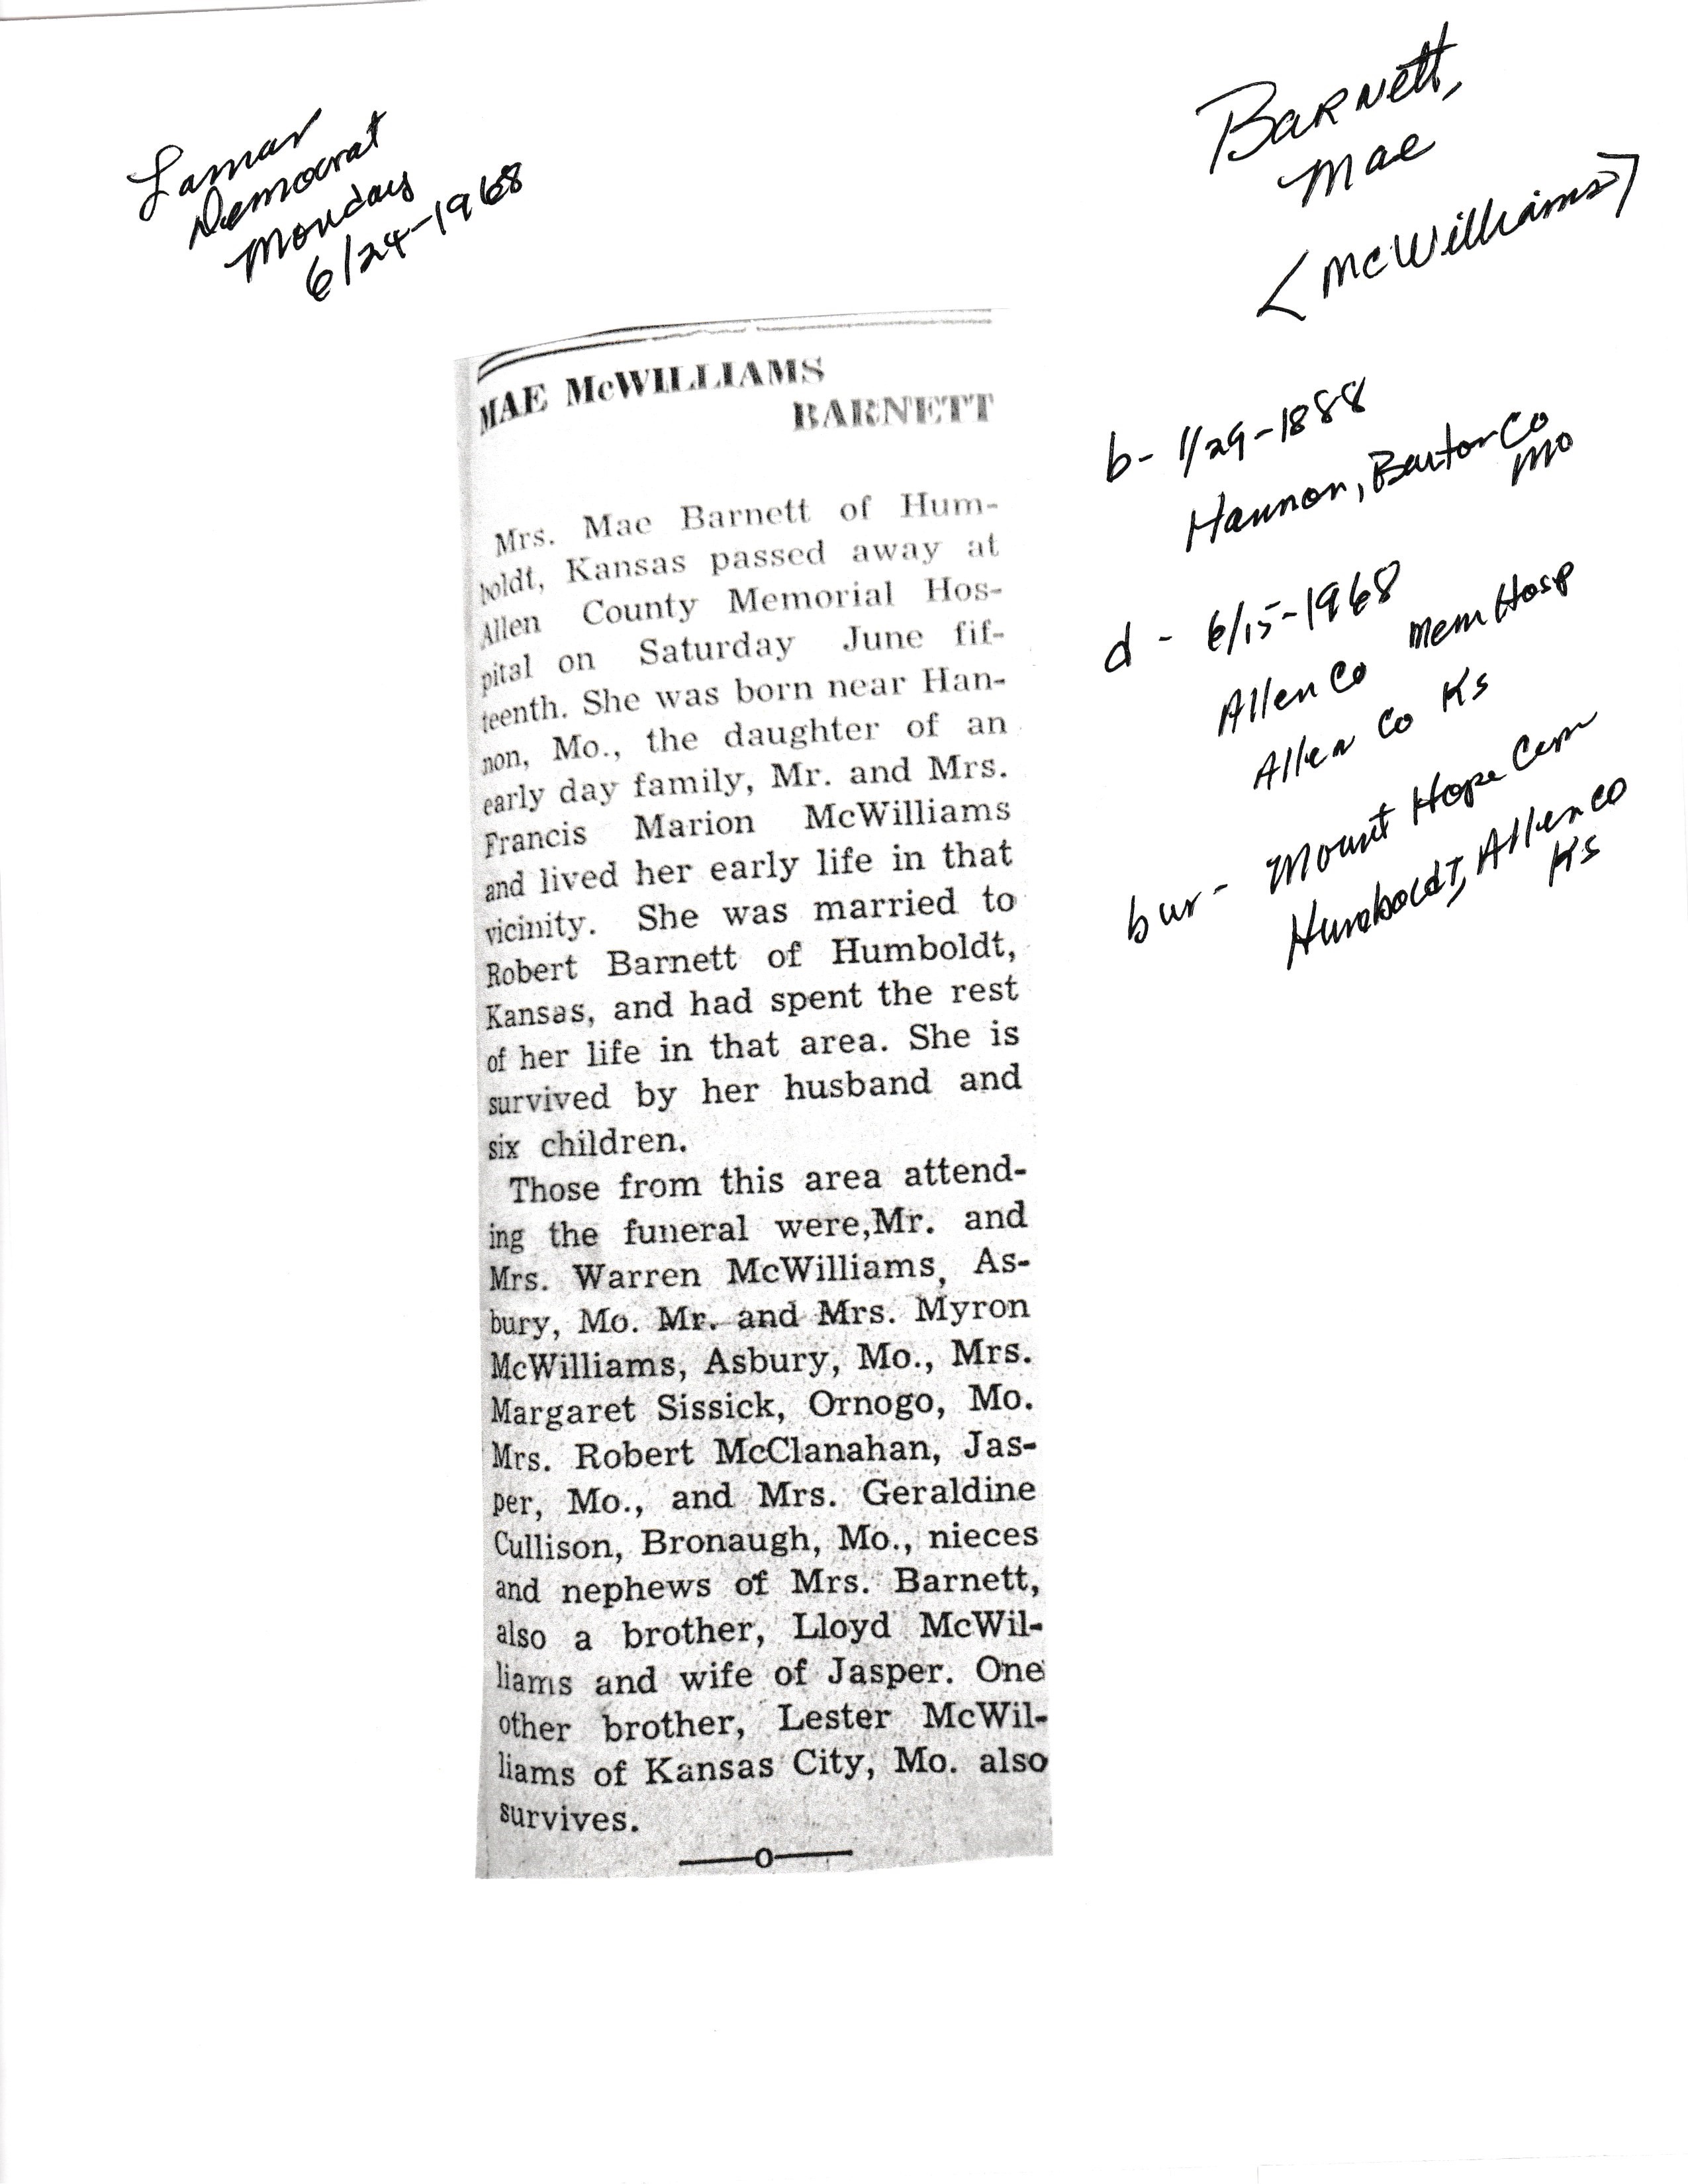 Lamar
Democrat
Monday
6/24-1968
Barnett,
Mae
<McWilliams>
b- 1/29-1888
Hannon, Barton Co
Mo
d - 6/15-1968
Allen Co Mem Hosp
Allen Co Ks
bur- Mount Hope Cem
Humboldt, Allen Co
Ks
MAE McWILLIAMS
BARNETT
Mrs. Mae Barnett of Hum-
boldt, Kansas passed away at
Allen County Memorial Hos-
pital on Saturday June fif-
teenth. She was born near Han-
non, Mo., the daughter of an
early day family, Mr. and Mrs.
Francis Marion McWilliams
and lived her early life in that
vicinity. She was married to
Robert Barnett of Humboldt,
Kansas, and had spent the rest
of her life in that area. She is
survived by her husband and
six children.
Those from this area attend-
ing the funeral were,Mr. and
Mrs. Warren McWilliams, As-
bury, Mo. Mr. and Mrs. Myron
McWilliams, Asbury, Mo., Mrs.
Margaret Sissick, Ornogo, Mo.
Mrs. Robert McClanahan, Jas-
per, Mo., and Mrs. Geraldine
Cullison, Bronaugh, Mo., nieces
and nephews of Mrs. Barnett,
also a brother, Lloyd McWil-
liams and wife of Jasper. One
other brother, Lester McWil-
liams of Kansas City, Mo. also
survives.
——o——